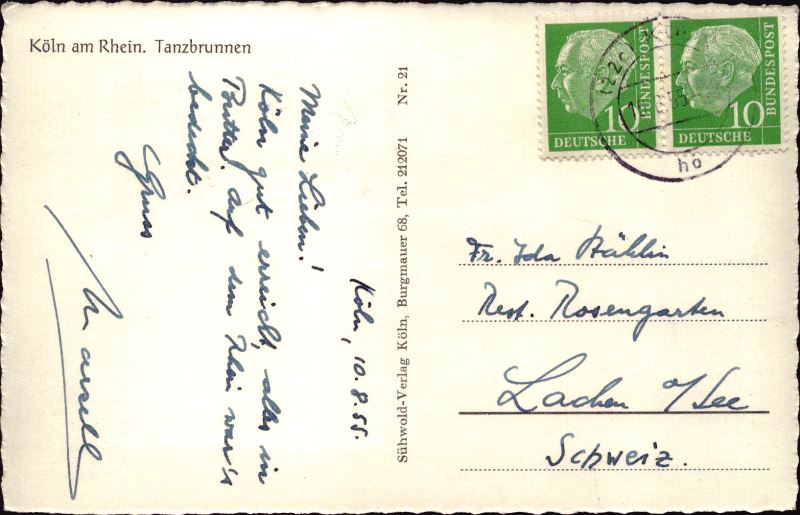 Köln am Rhein. Tanzbrunnen
Köln, 10.8.55.
Meine Lieben!
Köln gut erreicht, alles in
Butter. Auf dem Rhein war's
bedeckt.
Gruss
Marcell
Sühwold-Verlag Köln, Burgmauer 68, Tel. 212071 Nr. 21
10
DEUTSCHE
BUNDESPOST
10
DEUTSCHE
BUNDESPOST
(22c)
hö
Fr. Ida Stählin
Rest. Rosengarten
Lachen a/See
Schweiz.